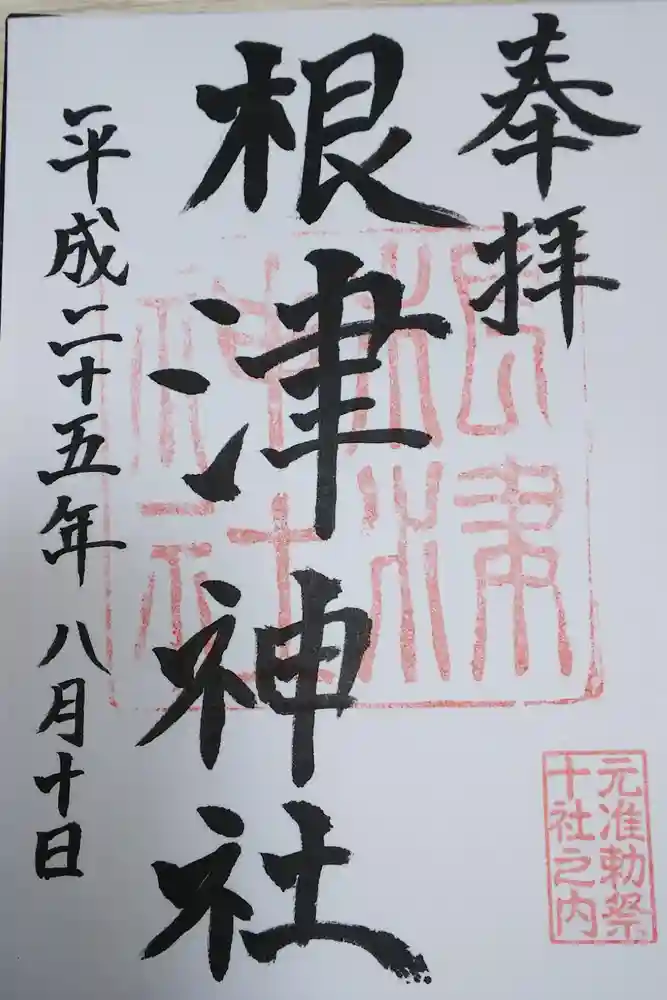 奉拝
根津神社
平成二十五年八月十日
根津
神社
元准勅祭
十社之内